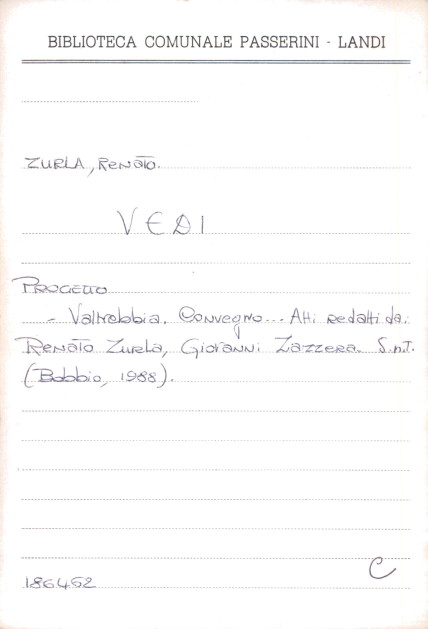 BIBLIOTECA COMUNALE PASSERINI - LANDI
ZURLA, Renato.
VEDI
PROGETTO
- Valtrebbia. Convegno... Atti redatti da:
Renato Zurla, Giovanni Zazzera. S.n.T.
(Bobbio, 1988).
C
186452